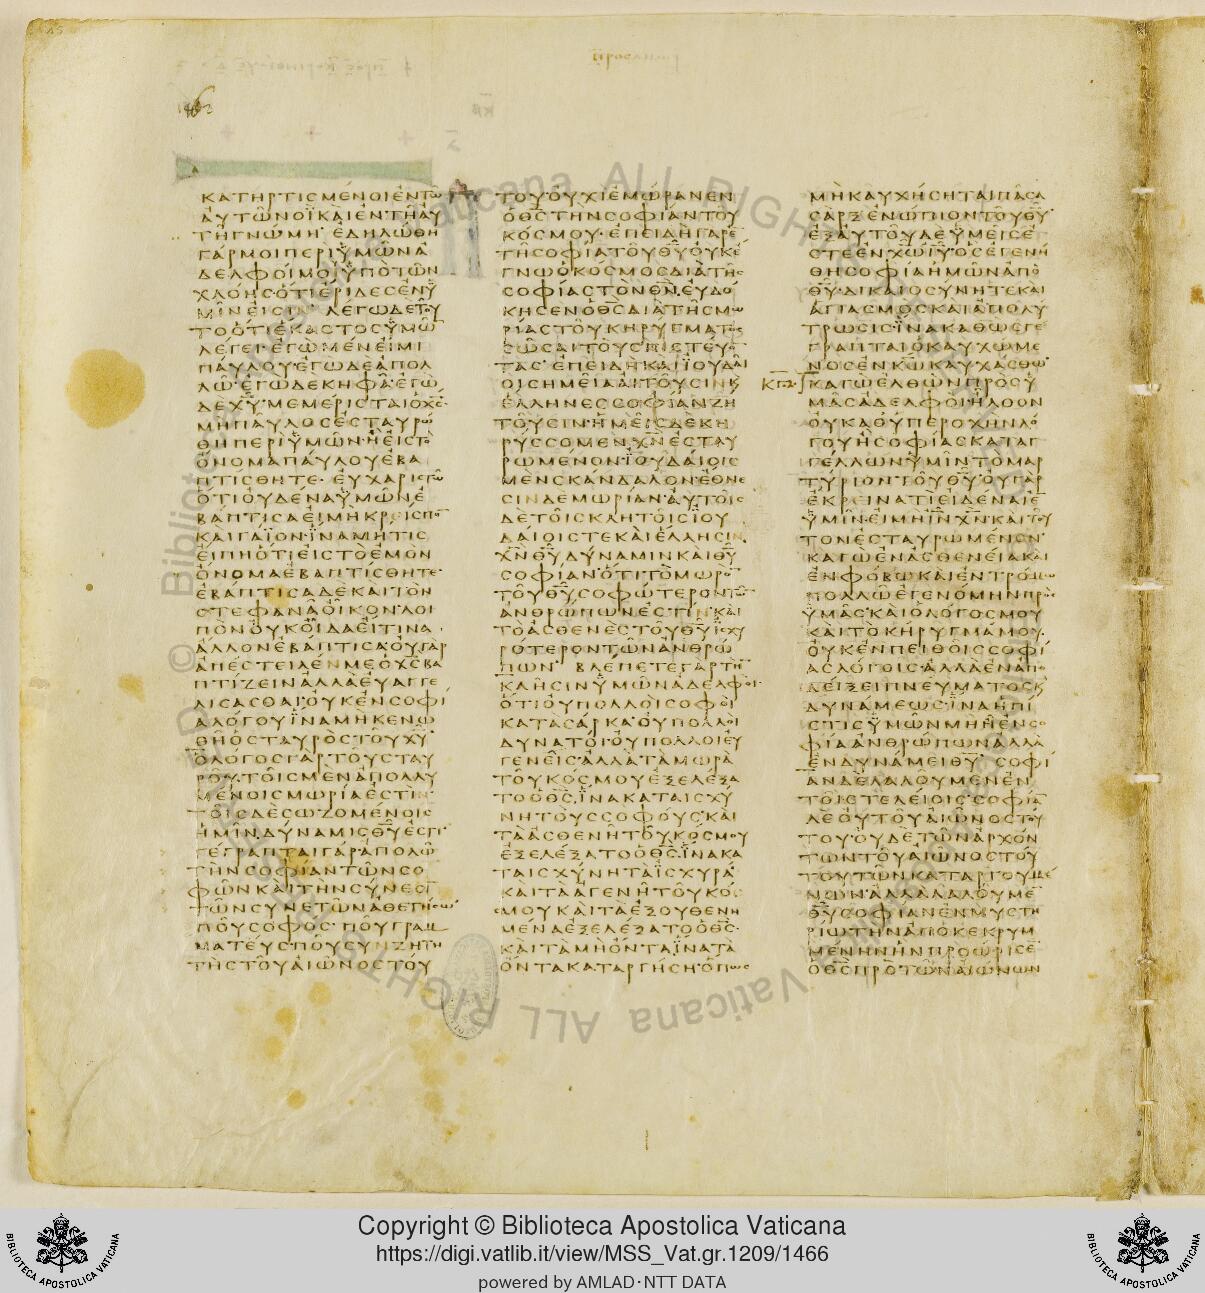 ΚΑΤΗΡΤΙΣΜΕΝΟΙΕΝΤΩ
ΑΥΤΩΝΟΪΚΑΙΕΝΤΗΑΥ
ΤΗΓΝΩΜΗ ΕΔΗΛΩΘΗ
ΓΑΡΜΟΙΠΕΡΙΫΜΩΝΑ
ΔΕΛΦΟΙΜΟΥΫΠΟΤΩΝ
ΧΛΟΗΣΟΤΙΕΡΙΔΕΣΕΝΫ
ΜΙΝΕΙΣΙΝ ΛΕΓΩΔΕΤΟΥ
ΤΟΟΤΙΕΚΑΣΤΟΣΫΜΩ̅
ΛΕΓΕΙΕΓΩΜΕΝΕΙΜΙ
ΠΑΥΛΟΥΕΓΩΔΕΑΠΟΛ
ΛΩ ΕΓΩΔΕΚΗΦΑ ΕΓΩ
ΔΕΧ̅Υ̅ ΜΕΜΕΡΙΣΤΑΙΟΧ̅Σ̅
ΜΗΠΑΥΛΟΣΕΣΤΑΥΡΩ
ΘΗΠΕΡΙΫΜΩΝ ΗΕΙΣΤΟ
ΟΝΟΜΑΠΑΥΛΟΥΕΒΑ
ΠΤΙΣΘΗΤΕ ΕΥΧΑΡΙΣΤΩ
ΟΤΙΟΥΔΕΝΑΫΜΩΝΕ
ΒΑΠΤΙΣΑΕΙΜΗΚΡΕΙΣΠΟ̅
ΚΑΙΓΑΪΟΝ ΪΝΑΜΗΤΙΣ
ΕΙΠΗΟΤΙΕΙΣΤΟΕΜΟΝ
ΟΝΟΜΑΕΒΑΠΤΙΣΘΗΤΕ
ΕΒΑΠΤΙΣΑΔΕΚΑΙΤΟΝ
ΣΤΕΦΑΝΑΟΙΚΟΝ ΛΟΙ
ΠΟΝΟΥΚΟΙΔΑΕΙΤΙΝΑ
ΑΛΛΟΝΕΒΑΠΤΙΣΑ ΟΥΓΑΡ
ΑΠΕΣΤΕΙΛΕΝΜΕΟΧ̅Σ̅ΒΑ
ΠΤΙΖΕΙΝΑΛΛΑΕΥΑΓΓΕ
ΛΙΣΑΣΘΑΙ ΟΥΚΕΝΣΟΦΙ
ΑΛΟΓΟΥΪΝΑΜΗΚΕΝΩ
ΘΗΟΣΤΑΥΡΟΣΤΟΥΧ̅Υ̅
ΟΛΟΓΟΣΓΑΡΤΟΥΣΤΑΥ
ΡΟΥ ΤΟΙΣΜΕΝΑΠΟΛΛΥ
ΜΕΝΟΙΣΜΩΡΙΑΕΣΤΙΝ
ΤΟΙΣΔΕΣΩΖΟΜΕΝΟΙΣ
ΗΜΙΝΔΥΝΑΜΙΣΘ̅Υ̅ΕΣΤΙ
ΓΕΓΡΑΠΤΑΙΓΑΡ ΑΠΟΛΩ
ΤΗΝΣΟΦΙΑΝΤΩΝΣΟ
ΦΩΝΚΑΙΤΗΝΣΥΝΕΣΙ̅
ΤΩΝΣΥΝΕΤΩΝΑΘΕΤΗΣΩ
ΠΟΥΣΟΦΟΣ ΠΟΥΓΡΑΜ
ΜΑΤΕΥΣΠΟΥΣΥΝΖΗΤΗ
ΤΗΣΤΟΥΑΙΩΝΟΣΤΟΥ
ΤΟΥ ΟΥΧΙΕΜΩΡΑΝΕΝ
ΟΘ̅Σ̅ΤΗΝΣΟΦΙΑΝΤΟΥ
ΚΟΣΜΟΥ ΕΠΕΙΔΗΓΑΡΕ̅
ΤΗΣΟΦΙΑΤΟΥΘ̅Υ̅ΟΥΚΕ
ΓΝΩΟΚΟΣΜΟΣΔΙΑΤΗΣ
ΣΟΦΙΑΣΤΟΝΘ̅Ν̅ ΕΥΔΟ
ΚΗΣΕΝΟΘ̅Σ̅ΔΙΑΤΗΣΜΩ
ΡΙΑΣΤΟΥΚΗΡΥΓΜΑΤΟΣ
ΣΩΣΑΙΤΟΥΣΠΙΣΤΕΥΟ̅
ΤΑΣ ΕΠΕΙΔΗΚΑΙΪΟΥΔΑΙ
ΟΙΣΗΜΕΙΑΑΙΤΟΥΣΙΝΚ
ΕΛΛΗΝΕΣΣΟΦΙΑΝΖΗ
ΤΟΥΣΙΝ ΗΜΕΙΣΔΕΚΗ
ΡΥΣΣΟΜΕΝΧ̅Ν̅ΕΣΤΑΥ
ΡΩΜΕΝΟΝ ΪΟΥΔΑΙΟΙΣ
ΜΕΝΣΚΑΝΔΑΛΟΝΕΘΝΕ
ΣΙΝΔΕΜΩΡΙΑΝ ΑΥΤΟΙΣ
ΔΕΤΟΙΣΚΛΗΤΟΙΣΪΟΥ
ΔΑΙΟΙΣΤΕΚΑΙΕΛΛΗΣΙΝ
Χ̅Ν̅Θ̅Υ̅ΔΥΝΑΜΙΝΚΑΙΘ̅Υ̅
ΣΟΦΙΑΝ ΟΤΙΤΟΜΩΡΟ̅
ΤΟΥΘ̅Υ̅ΣΟΦΩΤΕΡΟΝΤΩ̅
ΑΝΘΡΩΠΩΝΕΣΤΙΝ ΚΑΙ
ΤΟΑΣΘΕΝΕΣΤΟΥΘ̅Υ̅ΪΣΧΥ
ΡΟΤΕΡΟΝΤΩΝΑΝΘΡΩ
ΠΩΝ ΒΛΕΠΕΤΕΓΑΡΤΗ̅
ΚΛΗΣΙΝΫΜΩΝΑΔΕΛΦΟΙ
ΟΤΙΟΥΠΟΛΛΟΙΣΟΦΟΙ
ΚΑΤΑΣΑΡΚΑ ΟΥΠΟΛΛΟΙ
ΔΥΝΑΤΟΙ ΟΥΠΟΛΛΟΙΕΥ
ΓΕΝΕΙΣ ΑΛΛΑΤΑΜΩΡΑ
ΤΟΥΚΟΣΜΟΥΕΞΕΛΕΞΑ
ΤΟΟΘ̅Σ̅ ΪΝΑΚΑΤΑΙΣΧΥ
ΝΗΤΟΥΣΣΟΦΟΥΣ ΚΑΙ
ΤΑΑΣΘΕΝΗΤΟΥΚΟΣΜΟΥ
ΕΞΕΛΕΞΑΤΟΟΘ̅Σ̅ ΪΝΑΚΑ
ΤΑΙΣΧΥΝΗΤΑΪΣΧΥΡΑ
ΚΑΙΤΑΑΓΕΝΗΤΟΥΚΟΣ
ΜΟΥΚΑΙΤΑΕΞΟΥΘΕΝΗ
ΜΕΝΑΕΞΕΛΕΞΑΤΟΟΘ̅Σ̅
ΚΑΙΤΑΜΗΟΝΤΑ ΪΝΑΤΑ
ΟΝΤΑΚΑΤΑΡΓΗΣΗ ΟΠΩΣ
ΜΗΚΑΥΧΗΣΗΤΑΙΠΑΣΑ
ΣΑΡΞΕΝΩΠΙΟΝΤΟΥΘ̅Υ̅
ΕΞΑΥΤΟΥΔΕΫΜΕΙΣΕ
ΣΤΕΕΝΧ̅Ω̅Ι̅Υ̅ ΟΣΕΓΕΝΗ
ΘΗΣΟΦΙΑΗΜΩΝΑΠΟ
Θ̅Υ̅ ΔΙΚΑΙΟΣΥΝΗΤΕΚΑΙ
ΑΓΙΑΣΜΟΣΚΑΙΑΠΟΛΥ
ΤΡΩΣΙΣ ΪΝΑΚΑΘΩΣΓΕ
ΓΡΑΠΤΑΙΟΚΑΥΧΩΜΕ
ΝΟΣΕΝΚ̅Ω̅ΚΑΥΧΑΣΘΩ
ΚΑΓΩΕΛΘΩΝΠΡΟΣΫ
ΜΑΣΑΔΕΛΦΟΙ ΗΛΘΟΝ
ΟΥΚΑΘΥΠΕΡΟΧΗΝΛΟ
ΓΟΥΗΣΟΦΙΑΣΚΑΤΑΓ
ΓΕΛΛΩΝΫΜΙΝΤΟΜΑΡ
ΤΥΡΙΟΝΤΟΥΘ̅Υ̅ ΟΥΓΑΡ
ΕΚΡΕΙΝΑΤΙΕΙΔΕΝΑΙΕ̅
ΫΜΙΝ ΕΙΜΗΙ̅Ν̅Χ̅Ν̅ ΚΑΙΤΟΥ
ΤΟΝΕΣΤΑΥΡΩΜΕΝΟΝ
ΚΑΓΩΕΝΑΣΘΕΝΕΙΑΚΑΙ
ΕΝΦΟΒΩΚΑΙΕΝΤΡΟΜΩ
ΠΟΛΛΩΕΓΕΝΟΜΗΝΠΡΟΣ
ΫΜΑΣ ΚΑΙΟΛΟΓΟΣΜΟΥ
ΚΑΙΤΟΚΗΡΥΓΜΑΜΟΥ
ΟΥΚΕΝΠΕΙΘΟΙΣΣΟΦΙ
ΑΣΛΟΓΟΙΣ ΑΛΛΑΕΝΑΠΟ
ΔΕΙΞΕΙΠΝΕΥΜΑΤΟΣΚ
ΔΥΝΑΜΕΩΣ ΪΝΑΗΠΙ
ΣΤΙΣΫΜΩΝΜΗΗΕΝΣΟ
ΦΙΑΑΝΘΡΩΠΩΝΑΛΛΑ
ΕΝΔΥΝΑΜΕΙΘ̅Υ̅ ΣΟΦΙ
ΑΝΔΕΛΑΛΟΥΜΕΝΕΝ
ΤΟΙΣΤΕΛΕΙΟΙΣ ΣΟΦΙΑ̅
ΔΕΟΥΤΟΥΑΙΩΝΟΣΤΟΥ
ΤΟΥ ΟΥΔΕΤΩΝΑΡΧΟΝ
ΤΩΝΤΟΥΑΙΩΝΟΣΤΟΥ
ΤΟΥΤΩΝΚΑΤΑΡΓΟΥΜΕ
ΝΩΝ ΑΛΛΑΛΑΛΟΥΜΕ̅
Θ̅Υ̅ΣΟΦΙΑΝΕΝΜΥΣΤΗ
ΡΙΩΤΗΝΑΠΟΚΕΚΡΥΜ
ΜΕΝΗΝΗΝΠΡΟΩΡΙΣΕ̅
ΟΘ̅Σ̅ΠΡΟΤΩΝΑΙΩΝΩΝ
Copyright © Biblioteca Apostolica Vaticana
https://digi.vatlib.it/view/MSS_Vat.gr.1209/1466
powered by AMLAD·NTT DATA